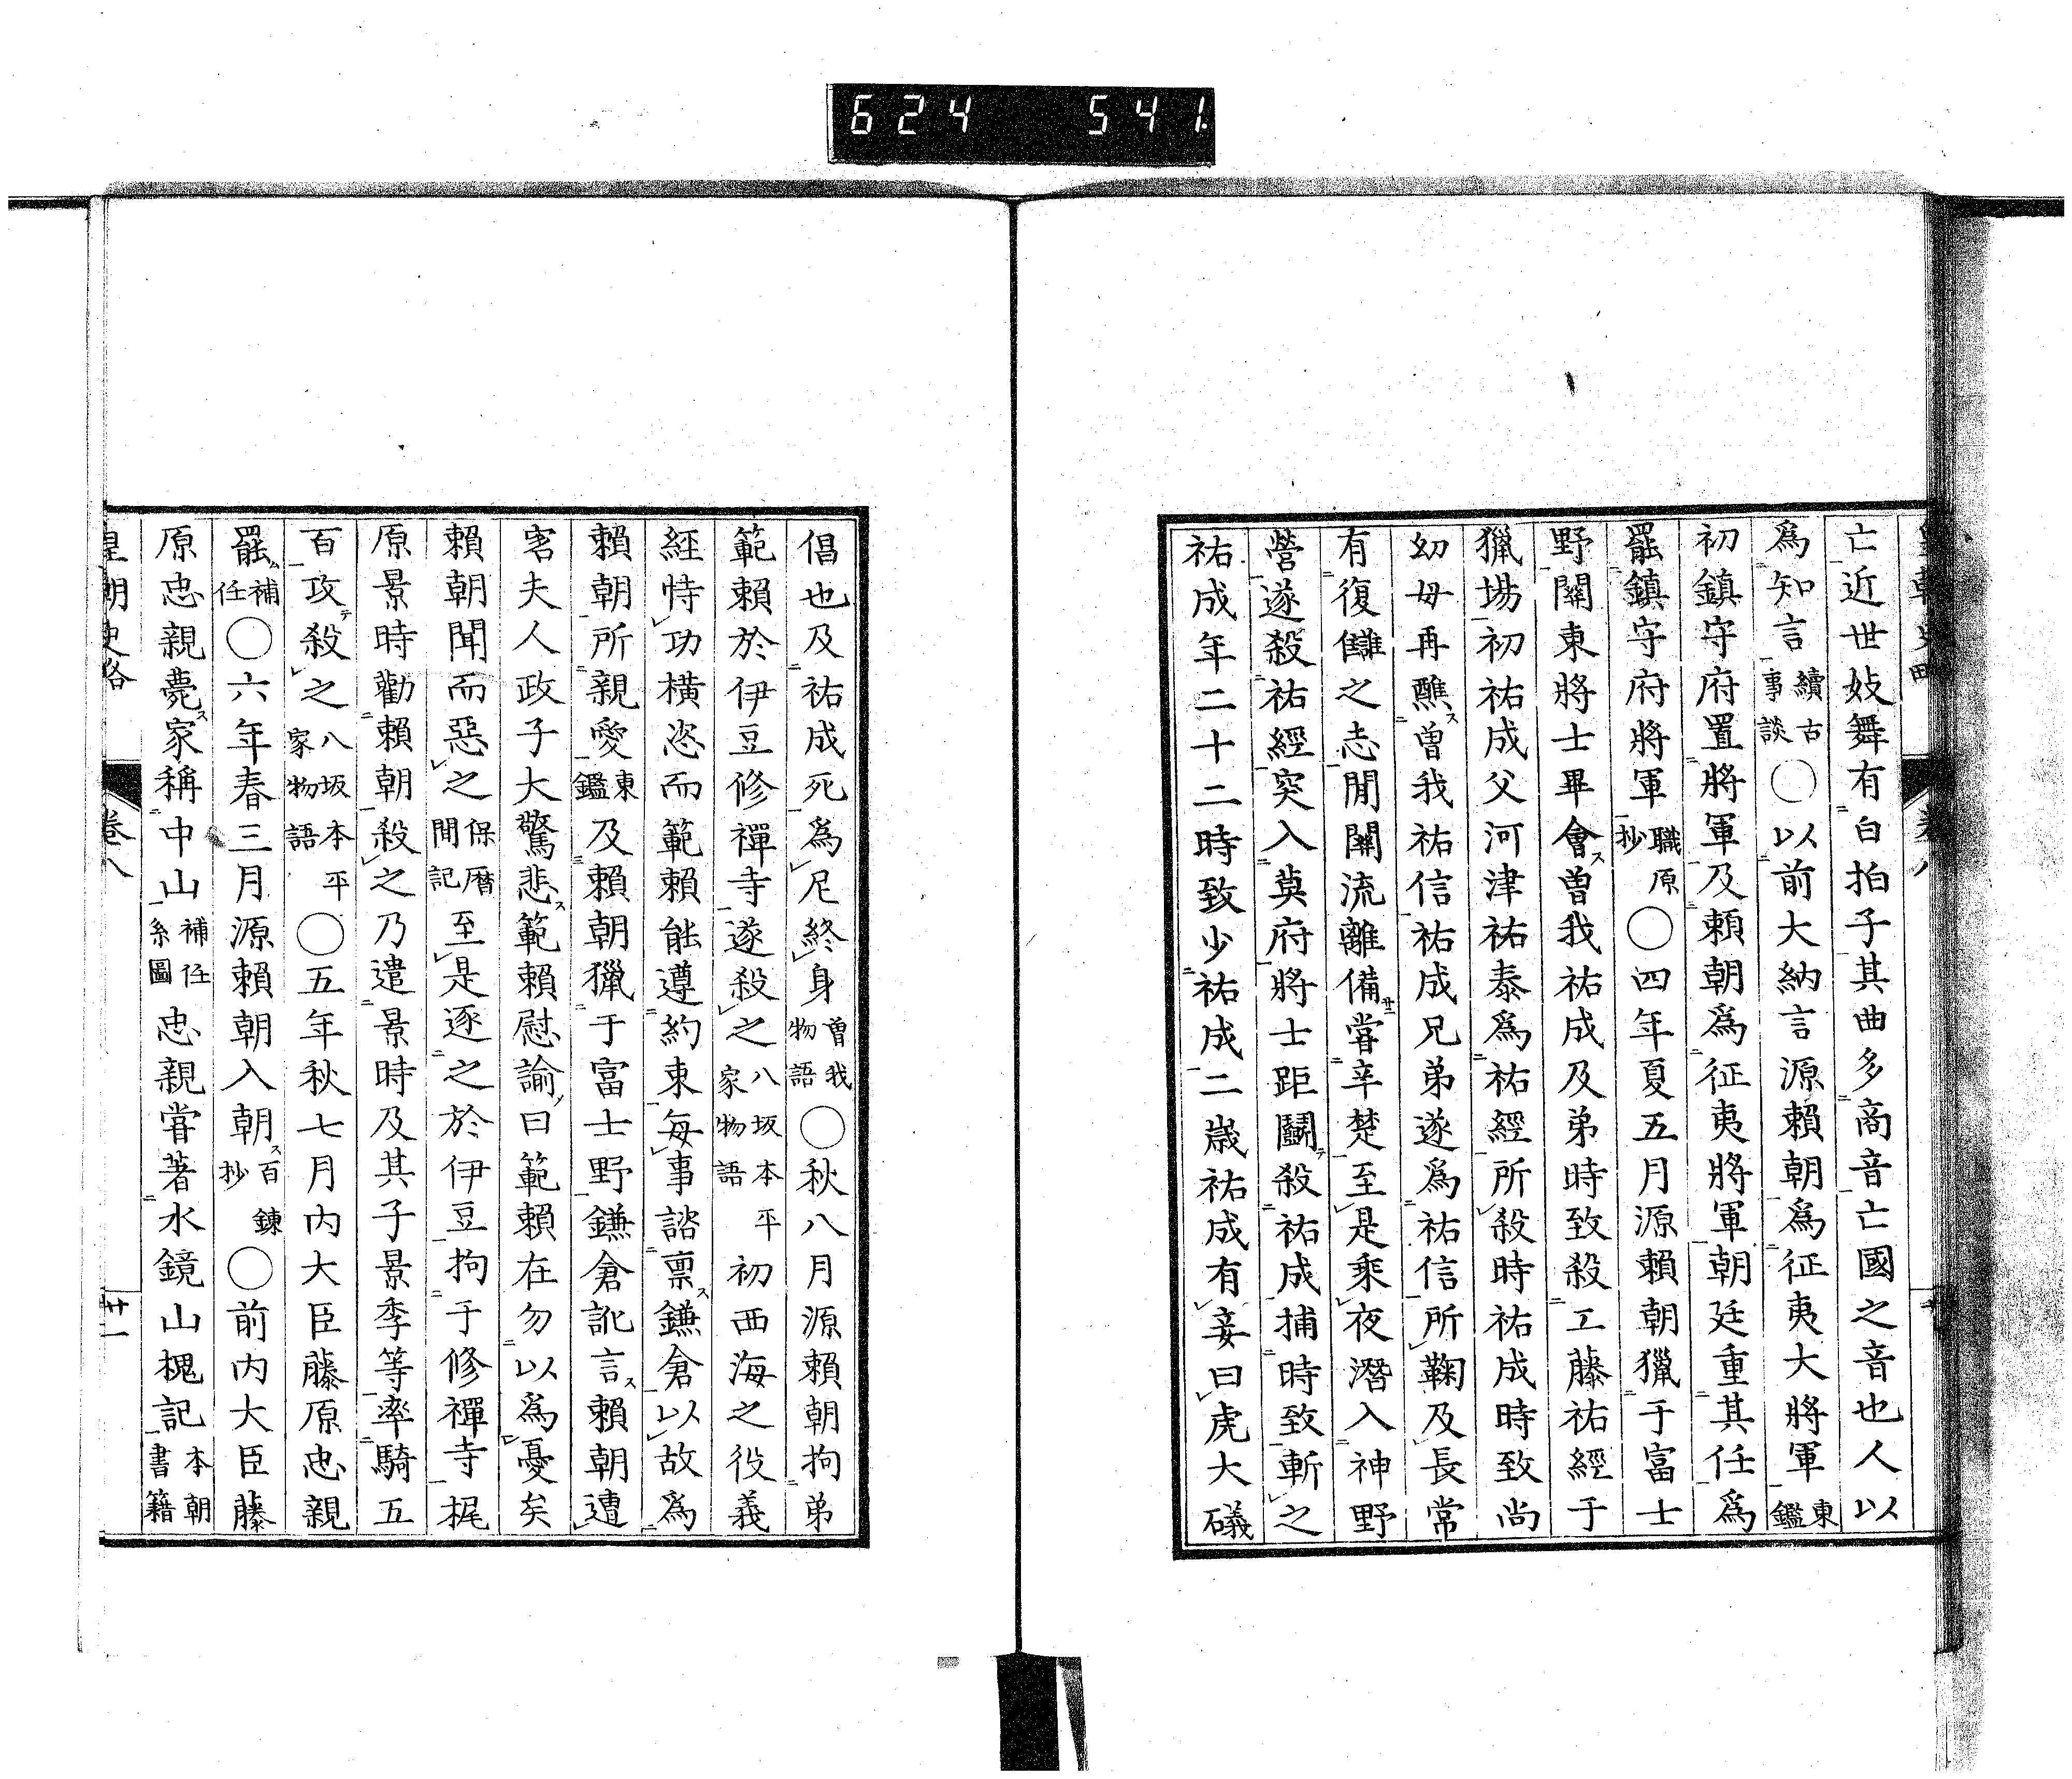 624 541
皇朝史畧 卷八
亡近世妓舞有白拍子其曲多商音亡國之音也人以
爲知言續古事談〇以前大納言源賴朝爲征夷大將軍東鑑
初鎮守府置將軍及賴朝爲征夷將軍朝廷重其任爲
罷鎮守府將軍職原抄〇四年夏五月源賴朝獵于富士
野關東將士畢會ス曽我祐成及弟時致殺工藤祐經于
獵場初祐成父河津祐泰爲祐經所殺時祐成時致尚
幼母再醮ス曽我祐信祐成兄弟遂爲祐信所鞠及長常
有復讎之志間關流離備嘗辛楚至是乘夜潛入神野
營遂殺祐經突入莫府將士距鬭テ殺祐成捕時致斬之
祐成年二十二時致少祐成二歲祐成有妾曰虎大礒
倡也及祐成死爲尼終身曽我物語〇秋八月源賴朝拘弟
範賴於伊豆修禪寺遂殺之八坂本平家物語初西海之役義
經恃功橫恣而範賴能遵約束每事諮禀ス鎌倉以故爲
賴朝所親愛東鑑及賴朝獵于富士野鎌倉訛言ス賴朝遭
害夫人政子大驚悲ス範賴慰諭曰範賴在勿以爲憂矣
賴朝聞而惡之保曆間記至是逐之於伊豆拘于修禪寺梶
原景時勸賴朝殺之乃遣景時及其子景季等率騎五
百攻テ殺之八坂本平家物語〇五年秋七月内大臣藤原忠親
罷ム補任〇六年春三月源賴朝入朝ス百鍊抄〇前内大臣藤
原忠親薨ス家稱中山補任系圖忠親嘗著水鏡山槐記本朝書籍
皇朝史略 卷八 廿一